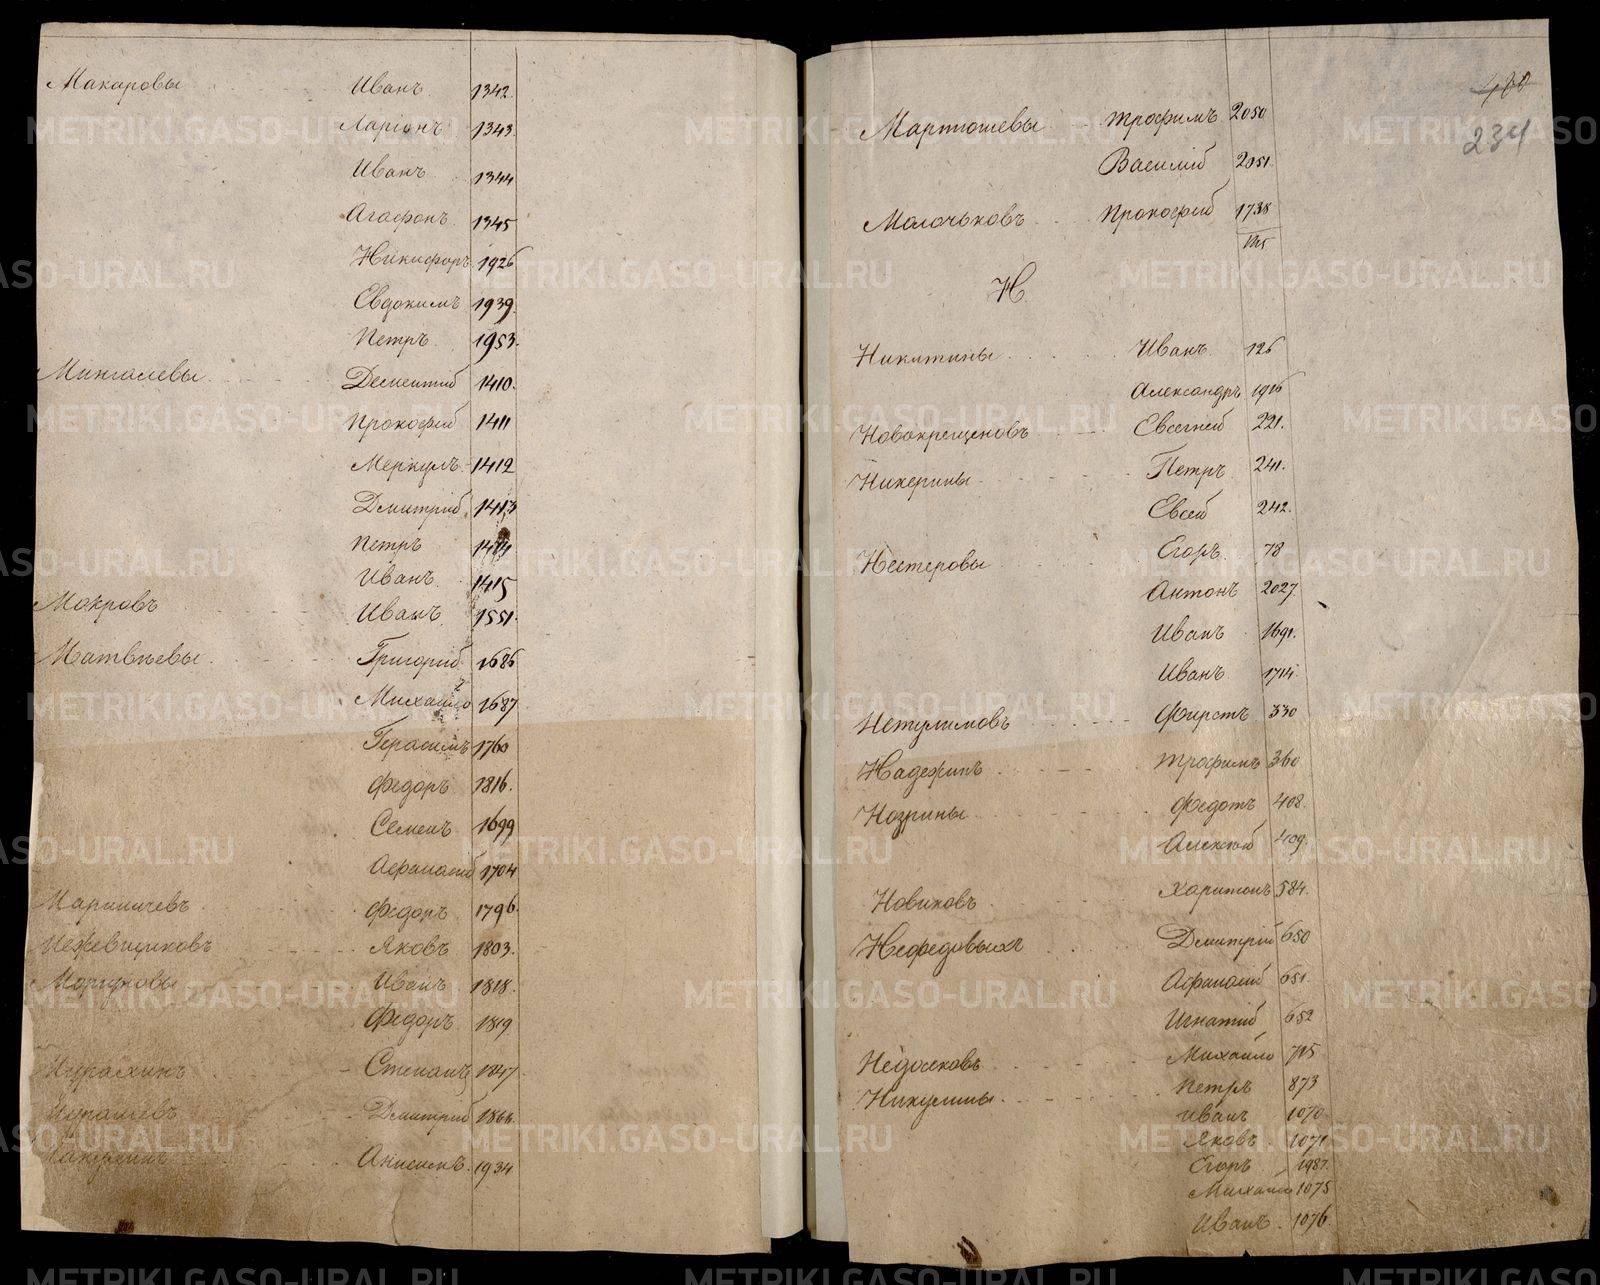 Макаровы Иванъ 1342.
Ларіонъ 1343.
Иванъ 1344
Агафонъ 1345
Никифоръ 1926
Евдокимъ 1939.
Петръ 1953.
Мингалевы Дементій 1410.
Прокофій 1411
Меркулъ 1412
Дмитрій 1413
Петръ 1414
Иванъ 1415
Мокровъ Иванъ 1551.
Матвѣевы Григорій 1686
Михайло 1687
Герасимъ 1760
Федоръ 1816.
Семенъ 1699
Афанасій 1704
Федоръ 1796.
Межевщиковъ Яковъ 1803.
Иванъ 1818.
Федоръ 1819
Степанъ 1847
Дмитрій 1866.
Анисимъ 1934
480
234
Мартюшевы Трофимъ 2050
Василій 2051.
Молочковъ Прокофій 1738
1215
Н.
Никитины Иванъ 126
Александръ 1916
Новокрещеновъ Евсегней 221.
Никерины Петръ 241.
Евсей 242.
Нестеровы Егоръ 78
Антонъ 2027.
Иванъ 1691.
Иванъ 1714.
Нетулимовъ Фирстъ 330
Надежинъ Трофимъ 360
Нозрины Федотъ 408.
Алексѣй 409.
Новиковъ Харитонъ 584.
Нефедовыхъ Дмитрій 650
Афанасій 651.
Игнатій 652
Недосековъ Михайло 715
Никулины Петръ 873
Иванъ 1070
Яковъ 1071
Егоръ 1987.
Михайло 1075
Иванъ 1076.
METRIKI.GASO-URAL.RU